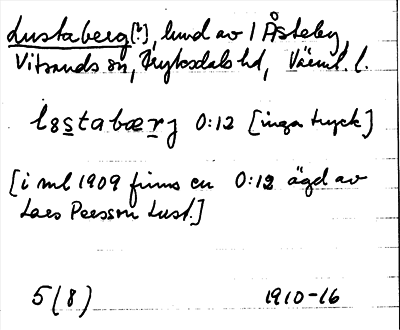 Lustaberg[?], lund av 1 Åsteby,
Vitsands sn, Fryksdals hd, Värml. l.
lɞstabærj 0:12 [inga tryck]
[i ml 1909 finns en 0:12 ägd av
Lars Persson Lust.]
5(8) 1910-16